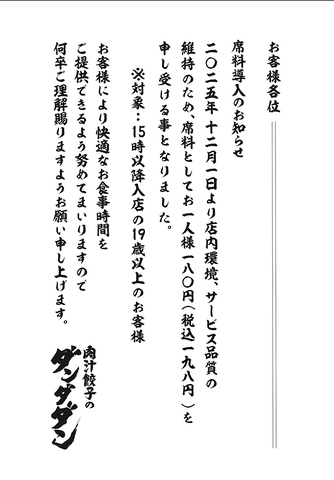 お客様各位
席料導入のお知らせ
二〇二五年 十二月一日より店内環境、サービス品質の
維持のため、席料としてお一人様一八〇円(税込一九八円)を
申し受ける事となりました。
※対象：15時以降入店の19歳以上のお客様
お客様により快適なお食事時間を
ご提供できるよう努めてまいりますので
何卒ご理解賜りますようお願い申し上げます。
肉汁餃子の
ダンダダン